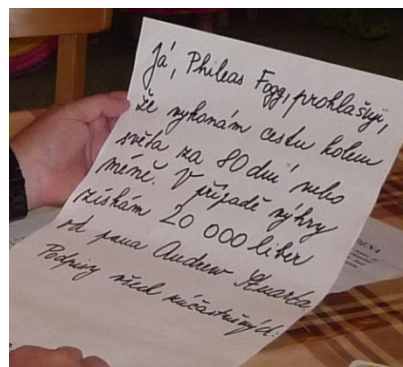 Já, Phileas Fogg, prohlašuji,
že vykonám cestu kolem
světa za 80 dní nebo
méně. V případě výhry
získám 20 000 liber
od pana Andrew Stuarta.
Podpisy všech zúčastněných: